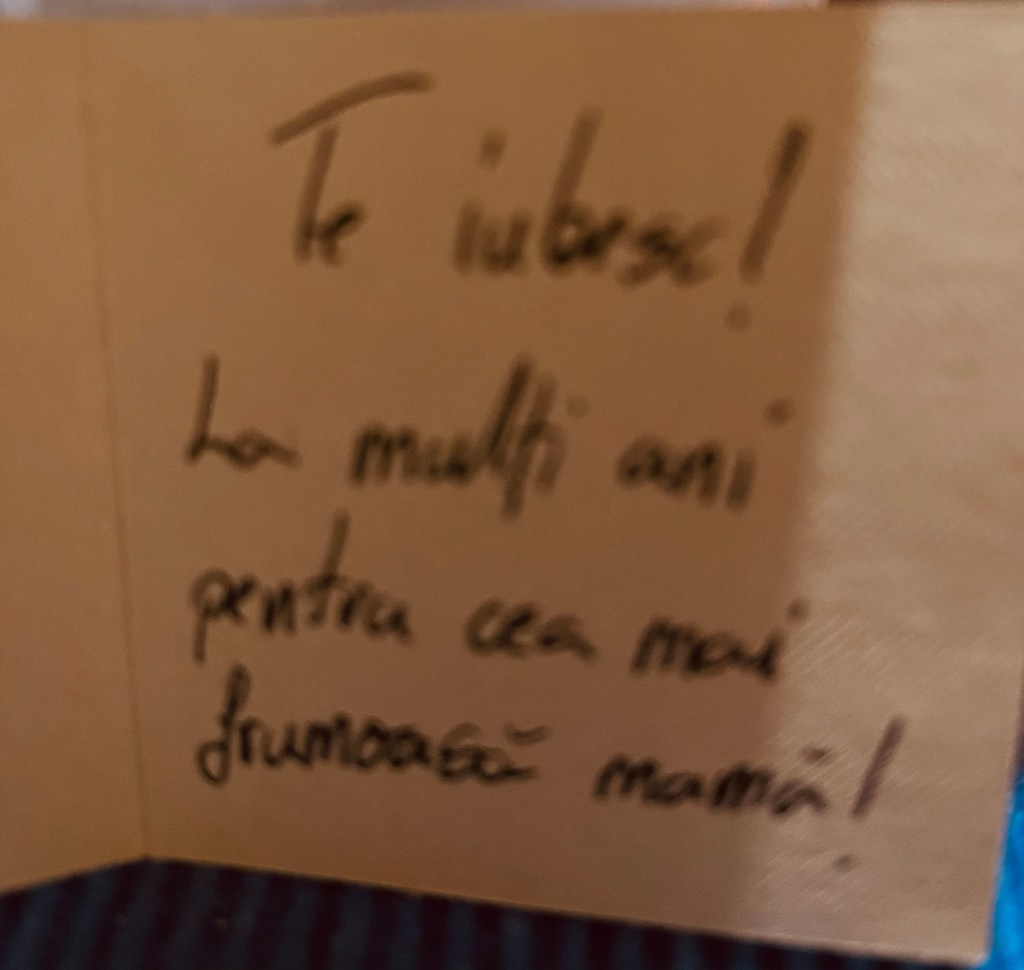 Te iubesc!
La mulți ani
pentru cea mai
frumoasă mamă!